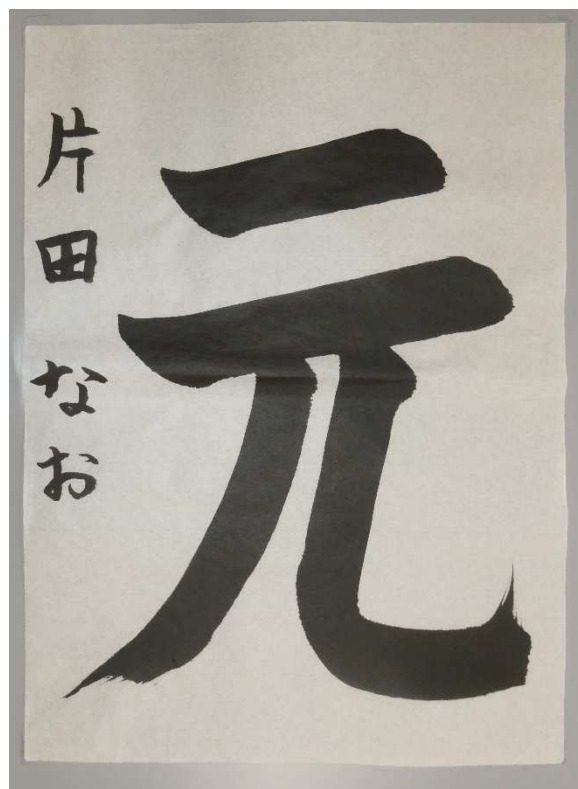 元
片田なお